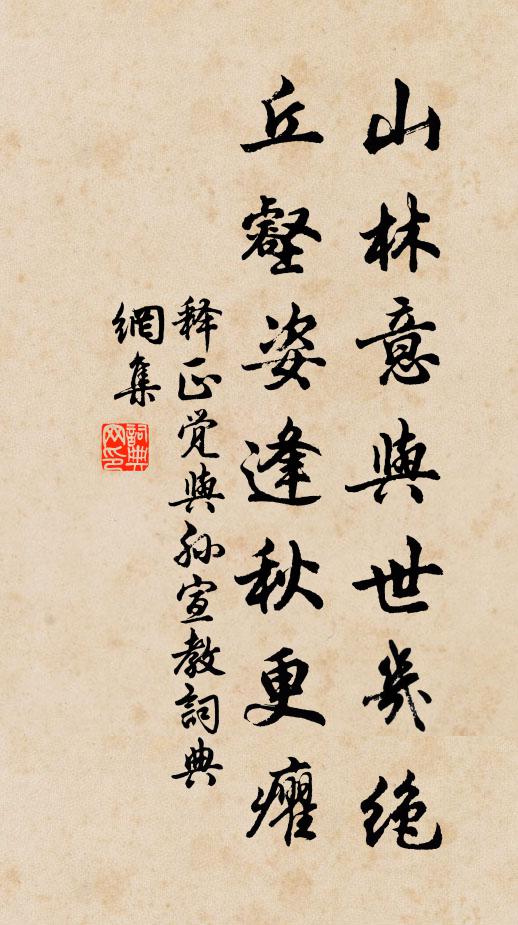 山林意與世幾絶
丘壑姿逢秋更癯
释正觉與孙宣教詞典
網集
詞典
网印